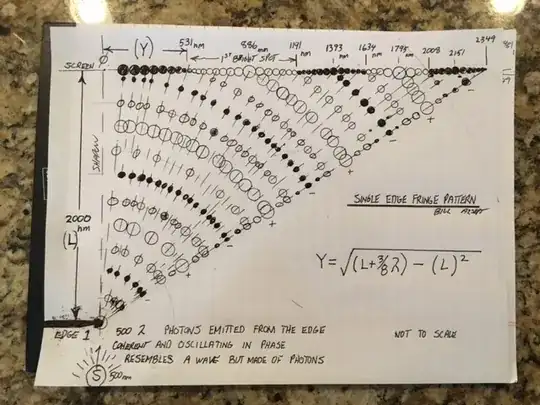 (Y)
531 nm
886 nm
1191 nm
1393 nm
1634 nm
1795 nm
2008
2151
2349
1ST BRIGHT SPOT
SCREEN
SHADOW
2000 nm
(L)
SINGLE EDGE FRINGE PATTERN
BILL
Y=√(L+3/8λ) − (L)²
EDGE 1
500 λ PHOTONS EMITTED FROM THE EDGE
COHERENT AND OSCILLATING IN PHASE
RESEMBLES A WAVE BUT MADE OF PHOTONS
NOT TO SCALE
S
500nm